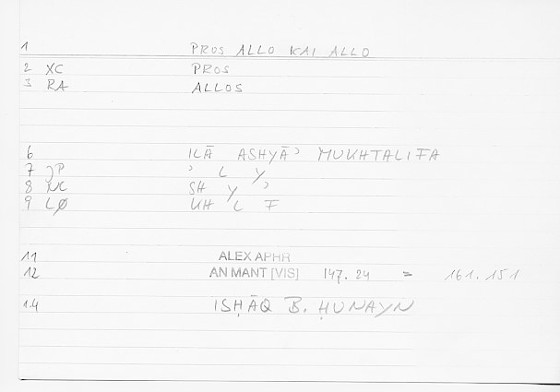 1 PROS ALLO KAI ALLO
2 XC PROS
3 RA ALLOS
6 ILĀ ASHYĀʾ MUKHTALIFA
7 JP ʾ L Y
8 NC SH Y ʾ
9 LØ KH L F
11 ALEX APHR
12 AN MANT [VIS] 147.24 = 161.151
14 ISḤĀQ B. ḤUNAYN